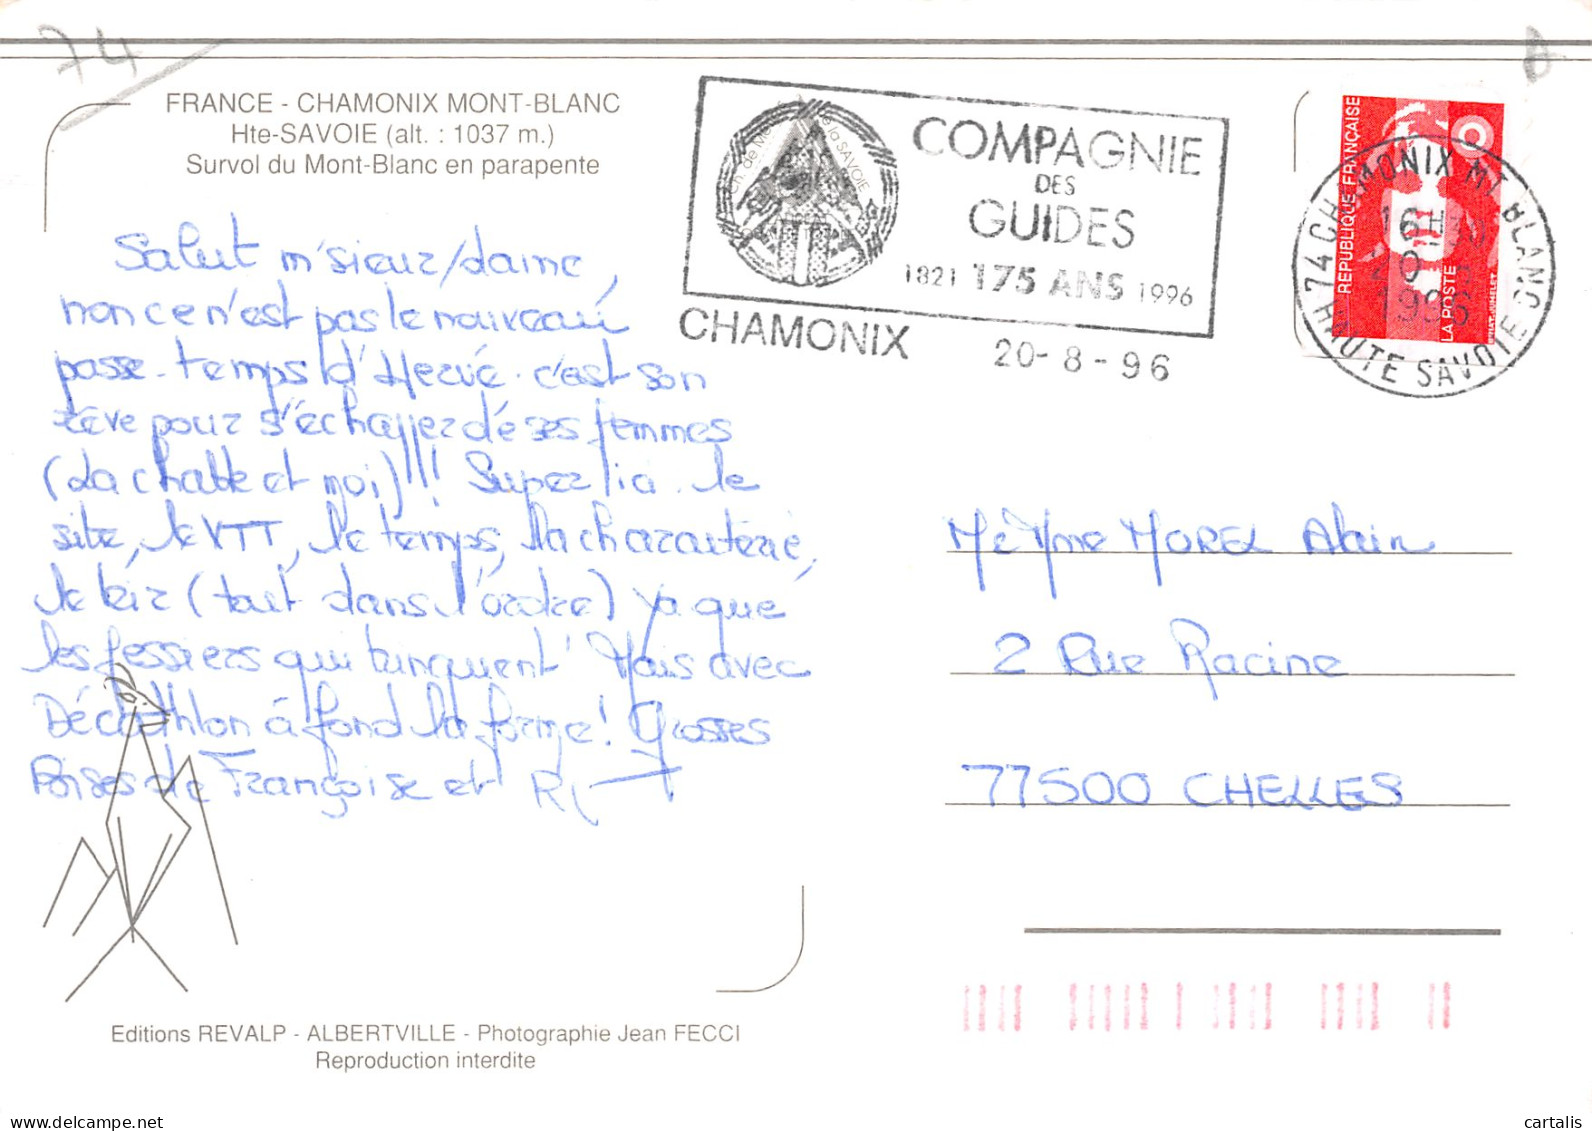 74
FRANCE - CHAMONIX MONT-BLANC
Hte-SAVOIE (alt. : 1037 m.)
Survol du Mont-Blanc en parapente
Salut m'sieur/dame,
non ce n'est pas le nouveau
passe-temps d'Hervé. c'est son
rêve pour s'échapper de ses femmes
(La chatte et moi)!!! Super ici. le
site, le VTT, le temps, la charcuterie,
le kir (tout dans l'ordre) Ya que
les fessiers qui trinquent! Mais avec
Décathlon à fond la forme! Grosses
Bises de Françoise et
COMPAGNIE
DES
GUIDES
1821 175 ANS 1996
CHAMONIX
20-8-96
RÉPUBLIQUE FRANÇAISE
LA POSTE
74 CHAMONIX MT BLANC
16H
20
1996
HAUTE SAVOIE
M et Mme MOREL Alain
2 Rue Racine
77500 CHELLES
Editions REVALP - ALBERTVILLE - Photographie Jean FECCI
Reproduction interdite
cartalis